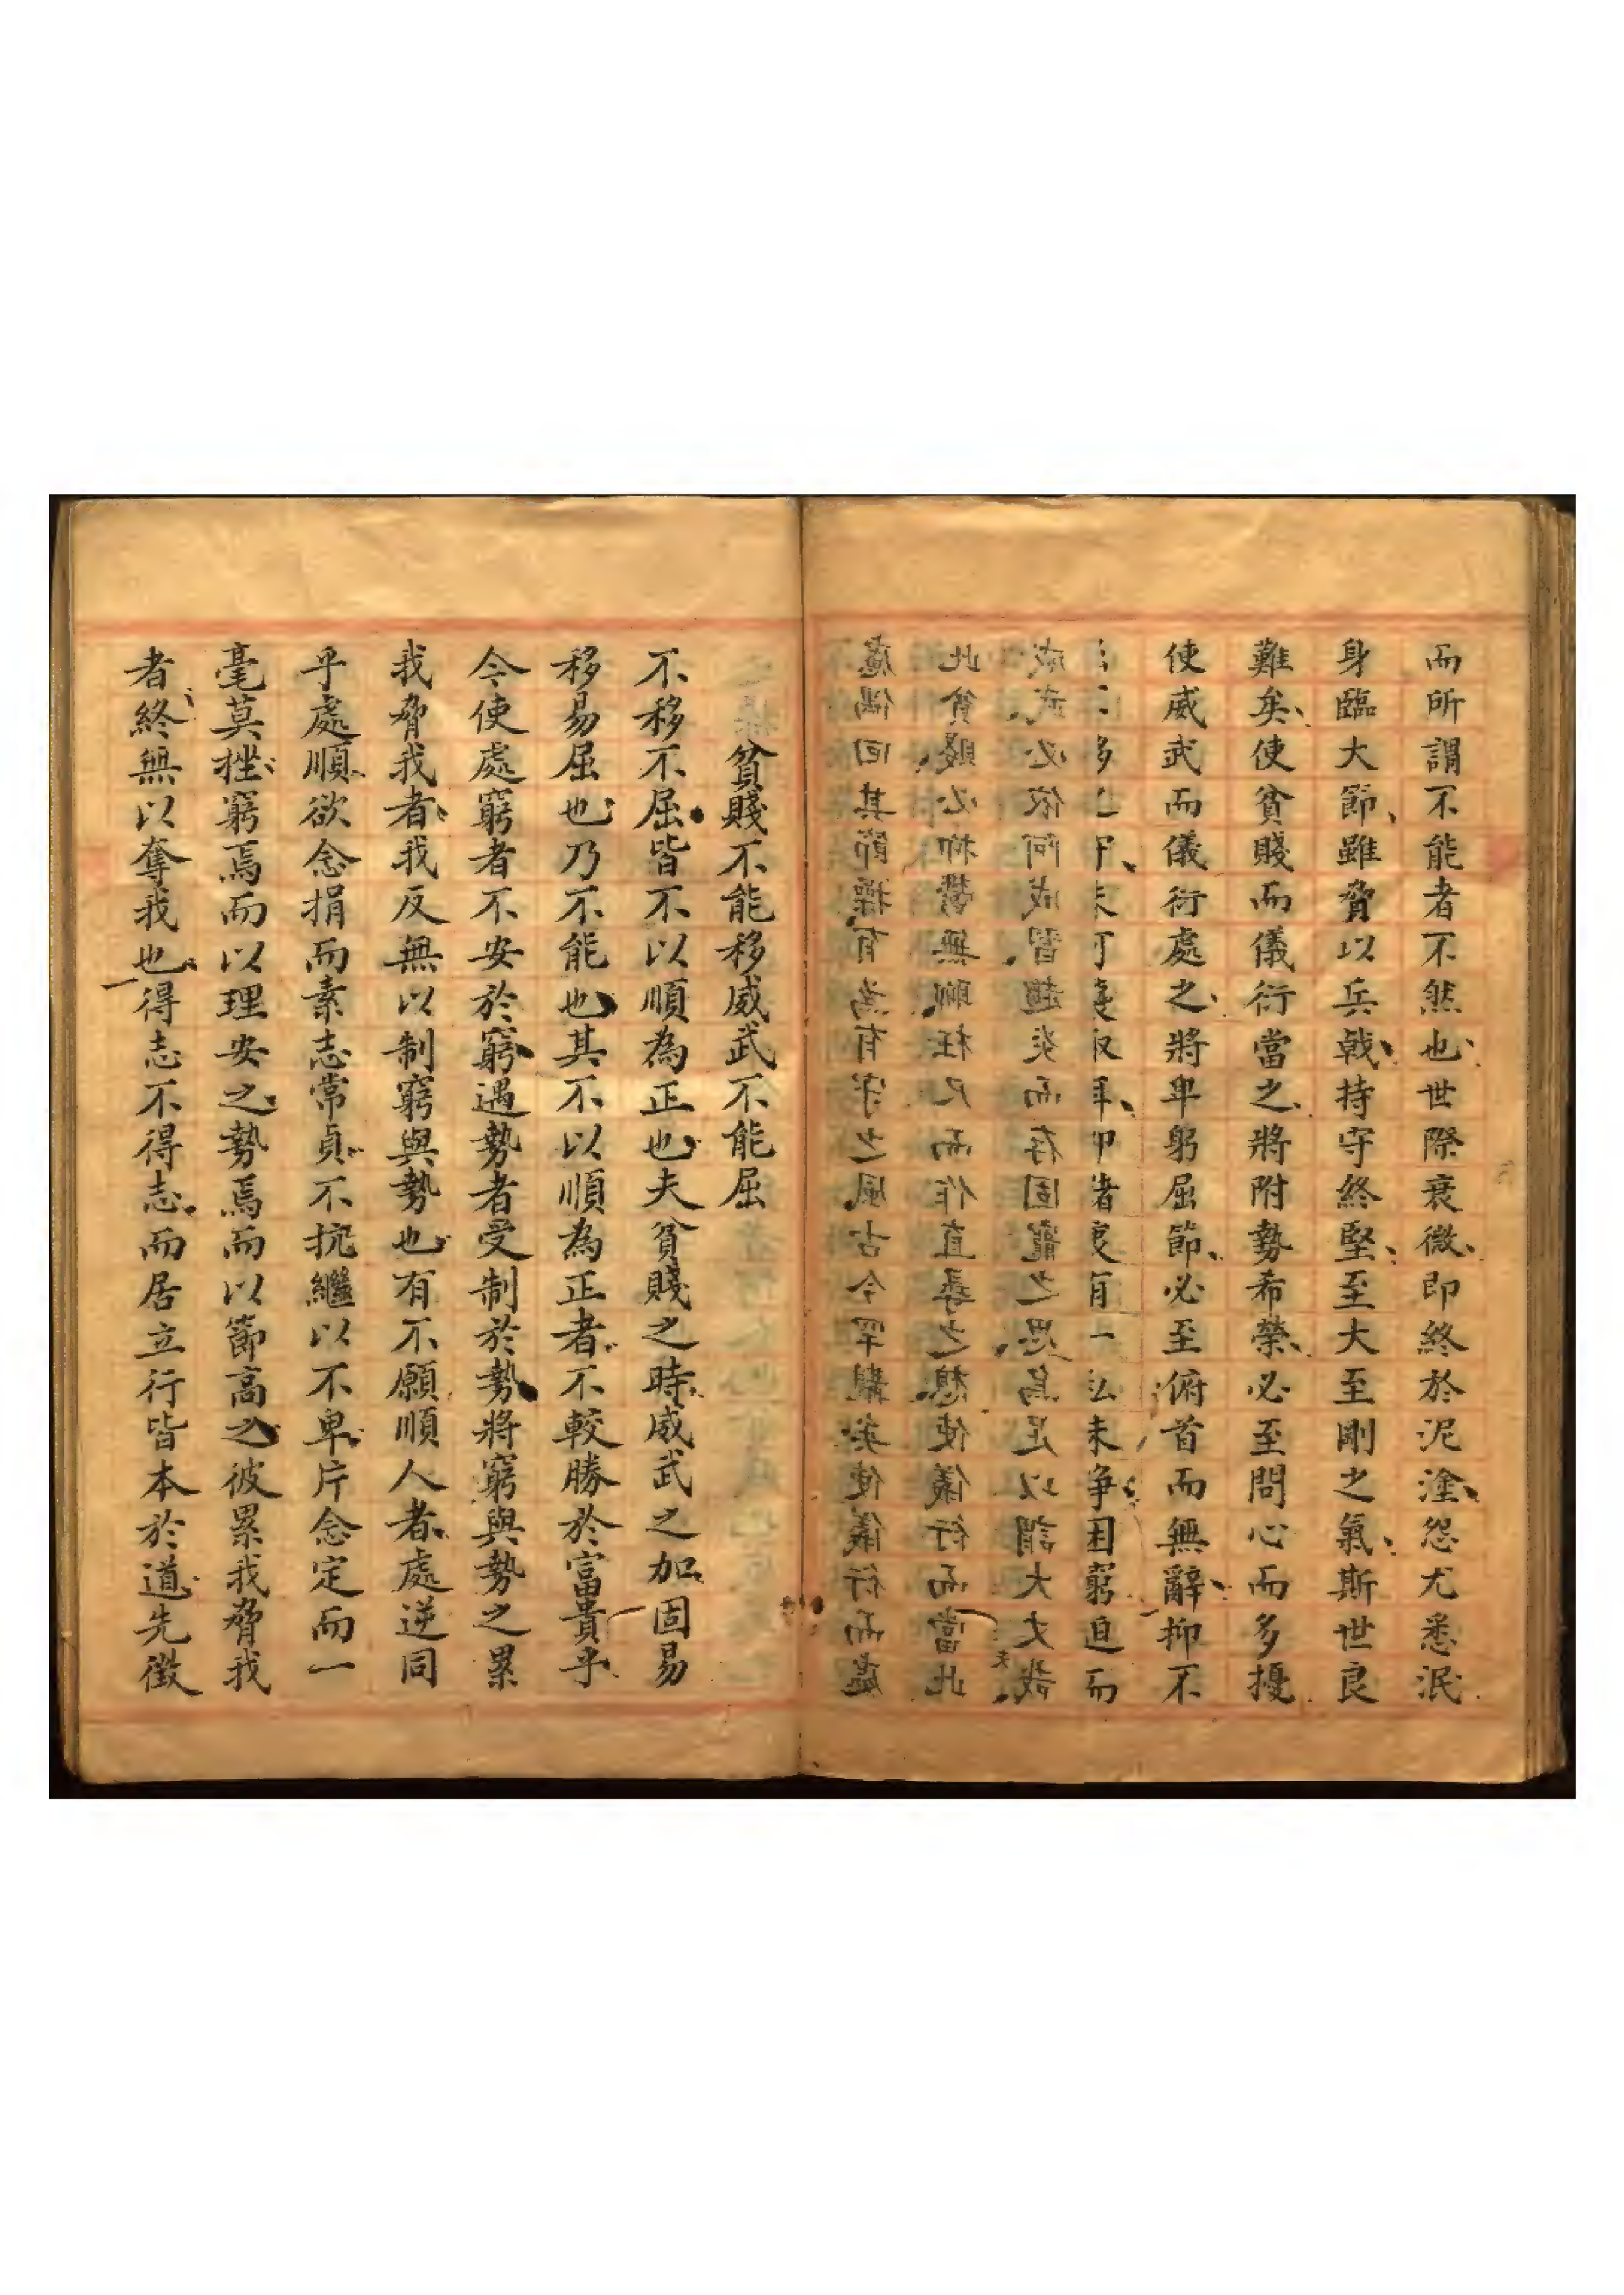 而所謂不能者不然也世際衰微即終於泥塗怨尤悉泯
身臨大節雖脅以兵戟持守終堅至大至剛之氣斯世良
難矣使貧賤而儀衍當之將附勢希榮必至問心而多擾
使威武而儀衍處之將卑躬屈節必至俯首而無辭抑不
有一未爭困窮迫而
威武必依阿成習趨炎而存固寵之思烏足以謂大丈夫哉
此貧賤必抑鬱無聊枉尺而作直尋之想使儀行而當此
慮偶回其節操有為有守之風古今罕覯矣使儀行而處
貧賤不能移威武不能屈
不移不屈皆不以順為正也夫貧賤之時威武之加固易
移易屈也乃不能也其不以順為正者不較勝於富貴乎
今使處窮者不安於窮遇勢者受制於勢將窮與勢之累
我脅我者我反無以制窮與勢也有不願順人者處逆同
乎處順欲念捐而素志常貞不抗繼以不卑片念定而一
毫莫挫窮焉而以理安之勢焉而以節高之彼累我脅我
者終無以奪我也得志不得志而居立行皆本於道先徵